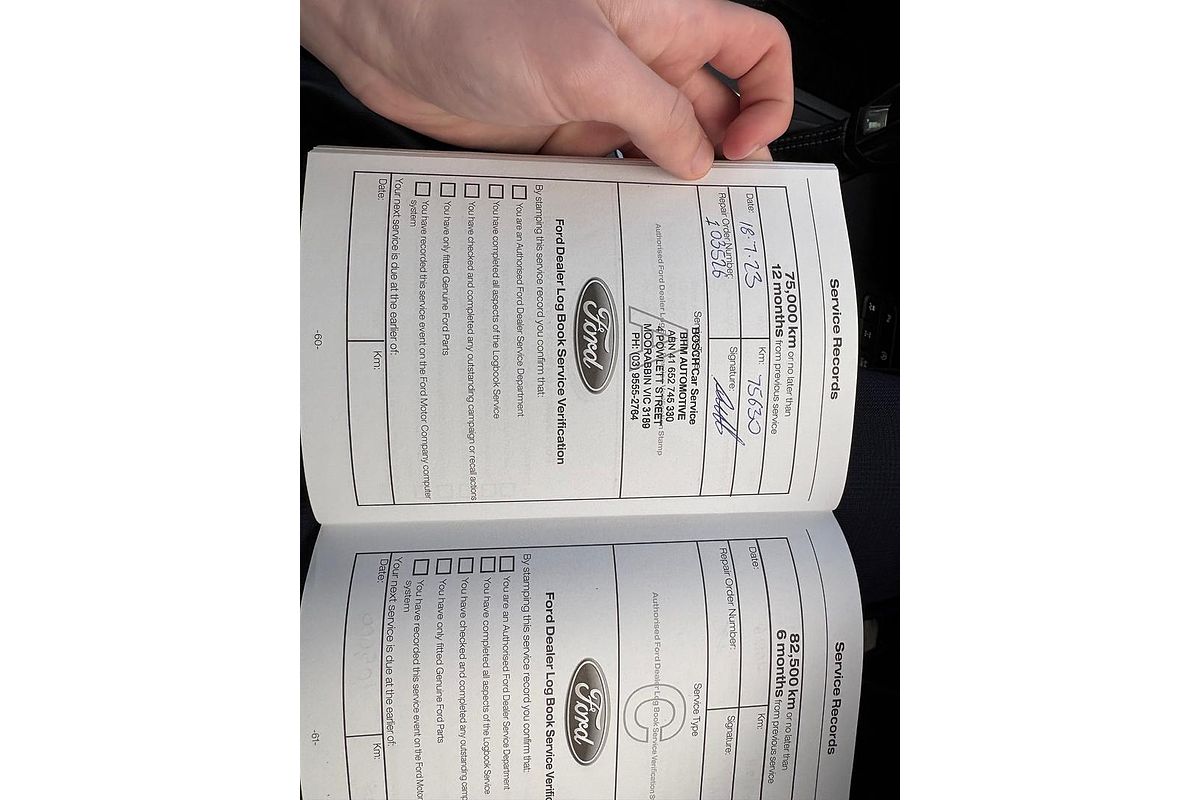 Service Records
75,000 km or no later than
12 months from previous service
Date: 18.7.23
Km: 75630
Repair Order Number: 103526
Signature:
Service
BOSCH Car Service
BHM AUTOMOTIVE
ABN 41 652 745 330
POWLETT STREET
MOORABBIN VIC 3189
PH: (03) 9555-2764
Authorised Ford Dealer Log
n Stamp
Ford
Ford Dealer Log Book Service Verification
By stamping this service record you confirm that:
You are an Authorised Ford Dealer Service Department
You have completed all aspects of the Logbook Service
You have checked and completed any outstanding campaign or recall actions
You have only fitted Genuine Ford Parts
You have recorded this service event on the Ford Motor Company computer
system
Your next service is due at the earlier of:
Date:
Km:
-60-
Service Records
82,500 km or no later than
6 months from previous service
Date:
Km:
Repair Order Number:
Signature:
Service Type
C
Authorised Ford Dealer Log Book Service Verification S
Ford
Ford Dealer Log Book Service Verific
By stamping this service record you confirm that:
You are an Authorised Ford Dealer Service Department
You have completed all aspects of the Logbook Service
You have checked and completed any outstanding camp
You have only fitted Genuine Ford Parts
You have recorded this service event on the Ford Motor
system
Your next service is due at the earlier of:
Date:
Km:
-61-